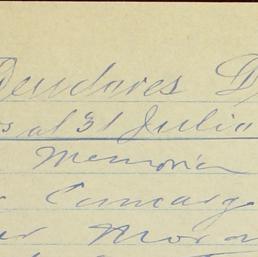 Deudores D
s al 31 Julio
Memoria
Camargo
Mora